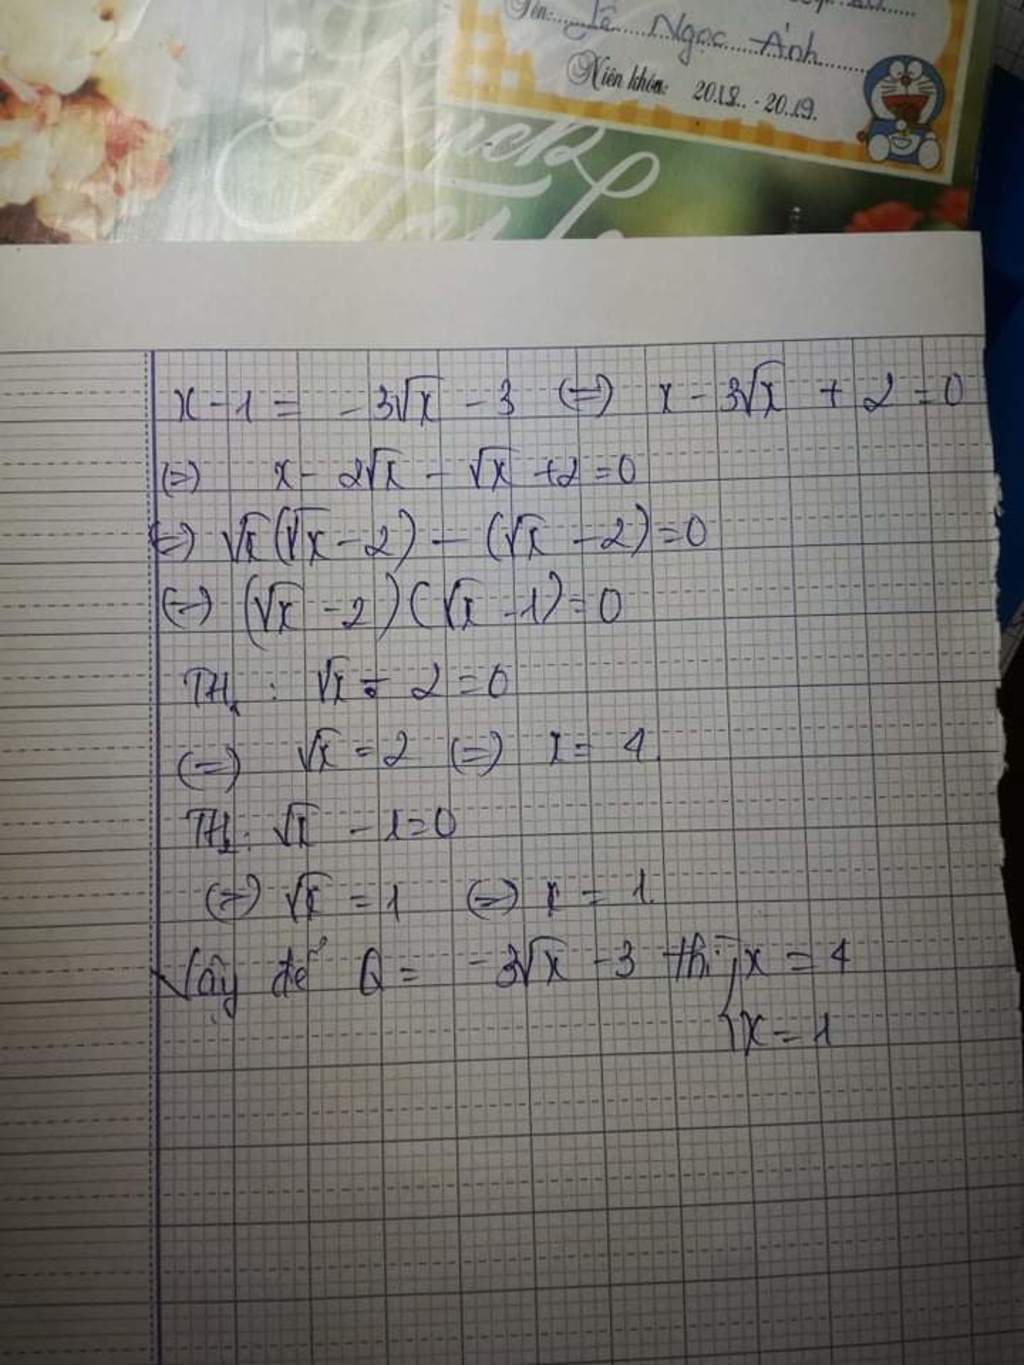 Tên:..... Lê Ngọc Ánh
Niên khóa: 2018.. - 20.19.
Luck
x - 1 = - 3√x - 3 (=) x - 3√x + 2 = 0
(=) x - 2√x - √x + 2 = 0
(=) √x (√x - 2) - (√x - 2) = 0
(=) (√x - 2) (√x - 1) = 0
TH1 : √x - 2 = 0
(=) √x = 2 (=) x = 4
TH2 : √x - 1 = 0
(=) √x = 1 (=) x = 1
Vậy để Q = - 3√x - 3 thì { x = 4
x = 1